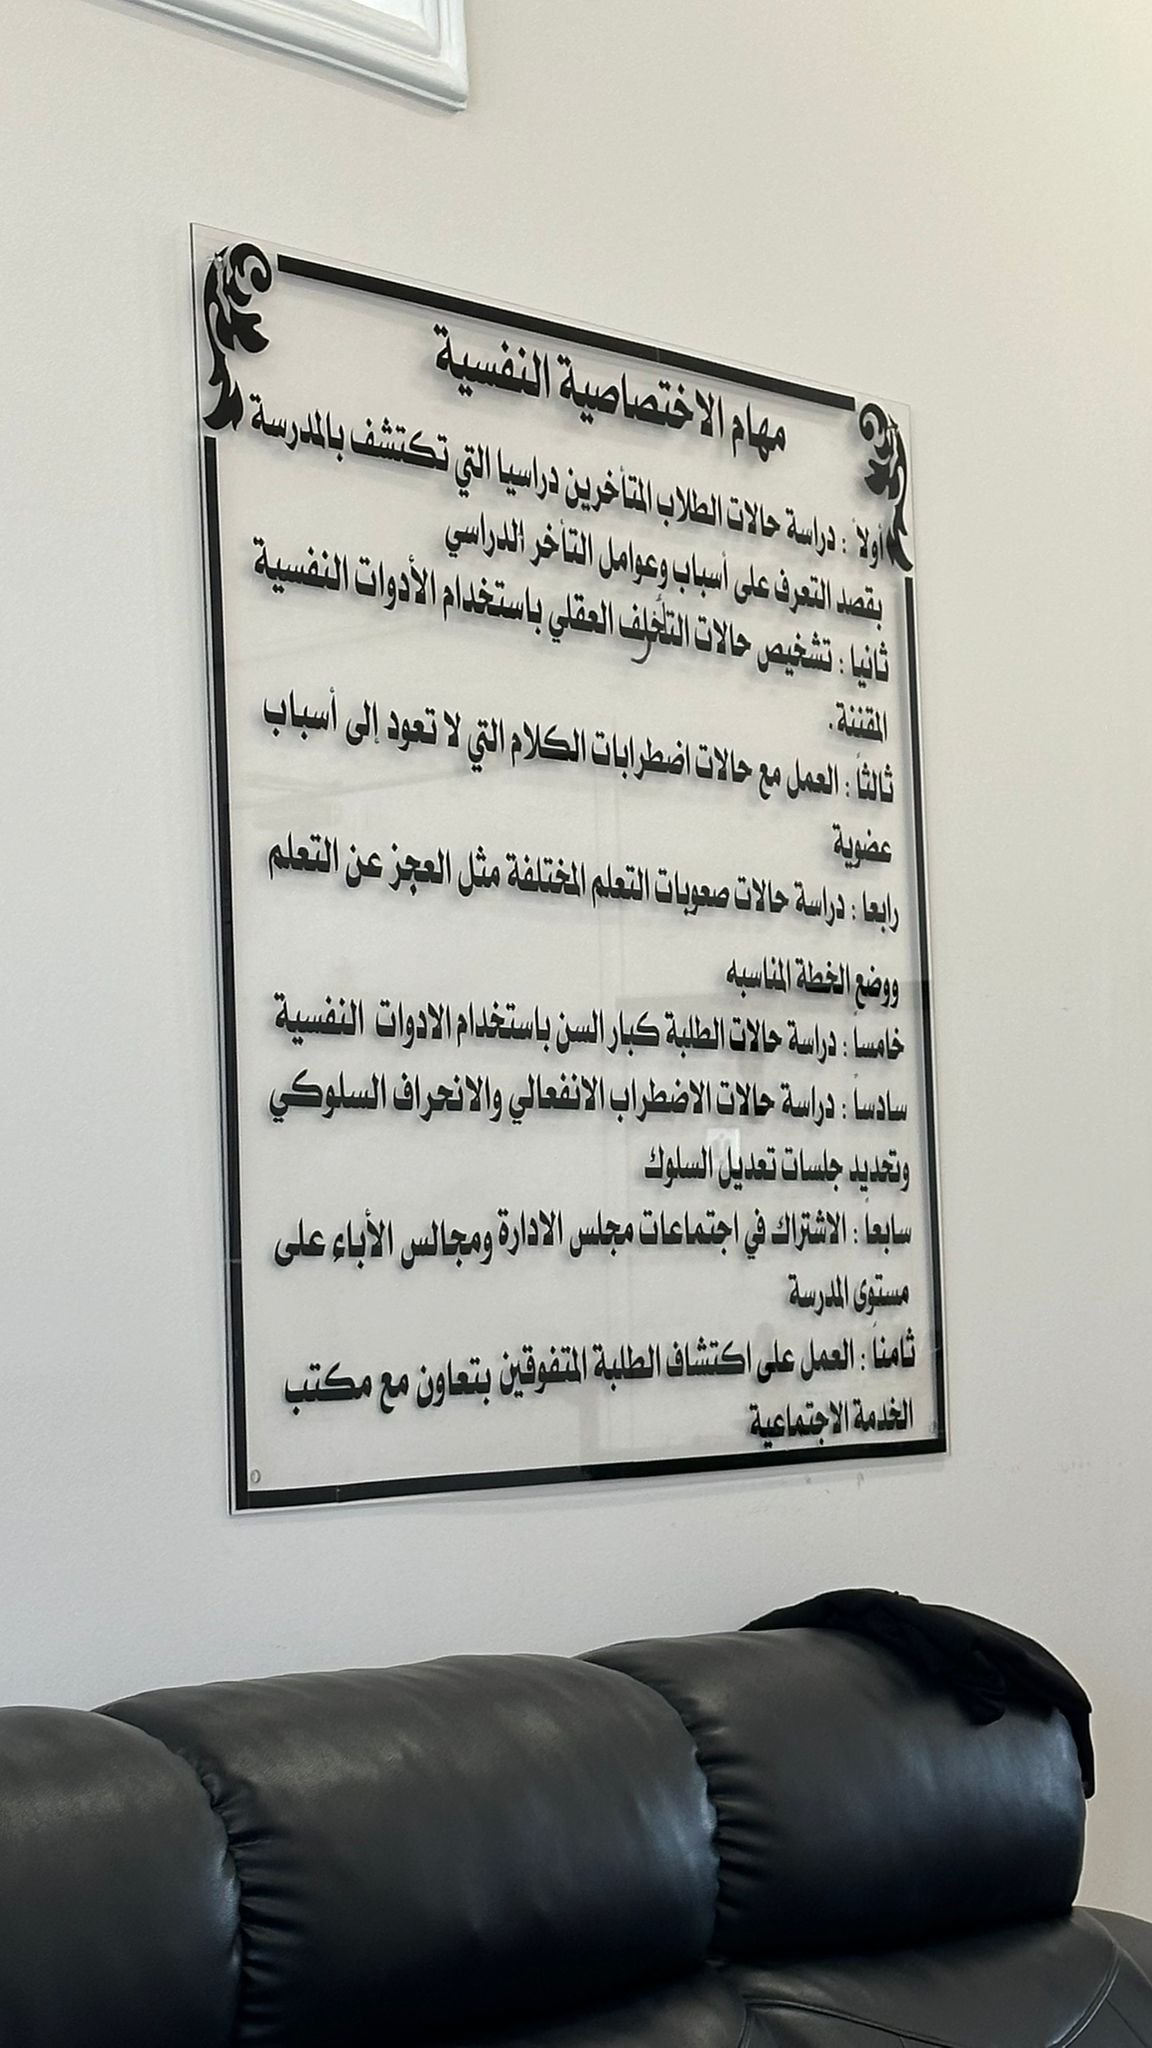 مهام الاختصاصية النفسية
أولاً : دراسة حالات الطلاب المتأخرين دراسيا التي تكتشف بالمدرسة
بقصد التعرف على أسباب وعوامل التأخر الدراسي
ثانيا : تشخيص حالات التأخلف العقلي باستخدام الأدوات النفسية
المقننة .
ثالثاً : العمل مع حالات اضطرابات الكلام التي لا تعود إلى أسباب
عضوية
رابعا : دراسة حالات صعوبات التعلم المختلفة مثل العجز عن التعلم
ووضع الخطة المناسبه
خامساً : دراسة حالات الطلبة كبار السن باستخدام الادوات النفسية
سادساً : دراسة حالات الاضطراب الانفعالي والانحراف السلوكي
وتحديد جلسات تعديل السلوك
سابعاً : الاشتراك في اجتماعات مجلس الادارة ومجالس الأباء على
مستوى المدرسة
ثامناً : العمل على اكتشاف الطلبة المتفوقين بتعاون مع مكتب
الخدمة الاجتماعية